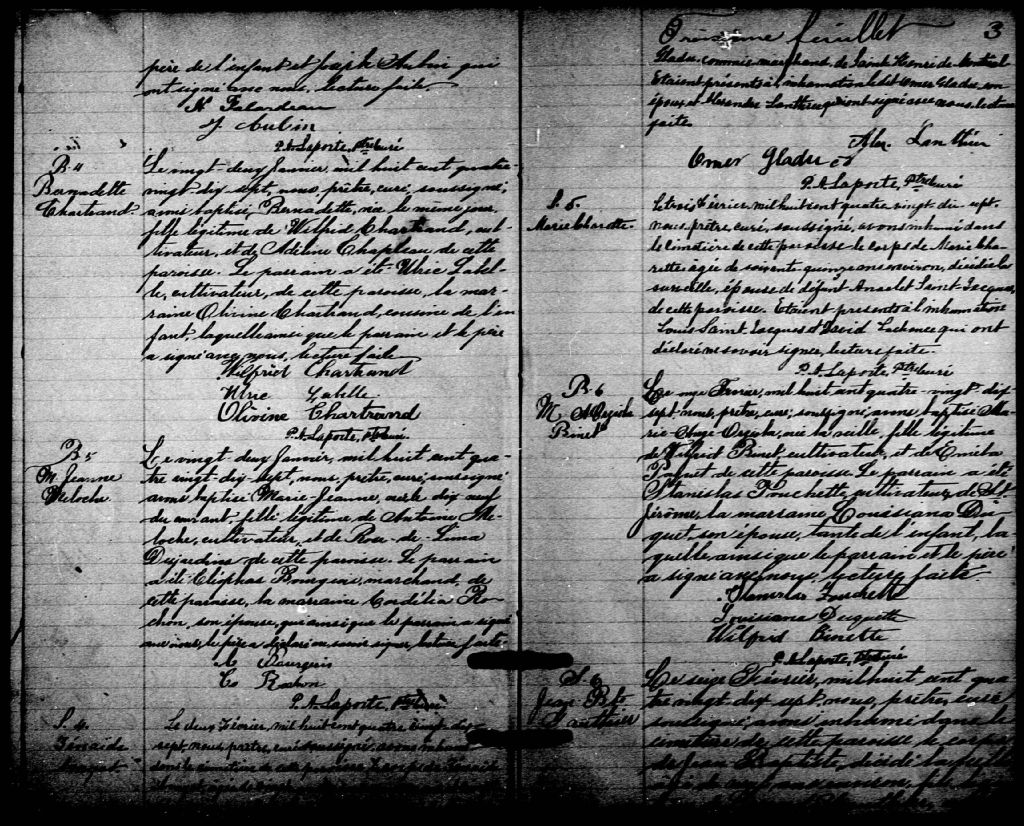 père de l'enfant et Joseph Aubin qui
ont signé avec nous, lecture faite.
N Falardeau
J Aubin
P. A. Laporte, Ptre curé
B 4
Bernadette
Chartrand.
Le vingt deux Janvier, mil huit cent quatre-
vingt-dix-sept, nous, prêtre, curé, soussigné,
avons baptisé, Bernadette, née le même jour,
fille légitime de Wilfrid Chartrand, cul-
tivateur, et de Adéline Chapleau de cette
paroisse. Le parrain a été Ulric Label-
le, cultivateur, de cette paroisse, la mar-
raine Olivine Chartrand, cousine de l'en
fant, laquelle ainsi que le parrain et le père
a signé avec nous, lecture faite
Wilfrid Chartrand
Ulric Labelle
Olivine Chartrand
P. A. Laporte, Ptre curé.
B 5
M. Jeanne
Meloche
Le vingt deux Janvier, mil huit cent qua-
tre vingt-dix-sept, nous, prêtre, curé, soussigné
avons baptisé Marie-Jeanne, née le dix neuf
du courant, fille légitime de Antoine Me-
loche, cultivateur, et de Rose-de-Lima
Desjardins de cette paroisse. Le parrain
a été Eliphas Bourgeois, marchand, de
cette paroisse, la marraine Cordélia Ro-
chon, son épouse, qui ainsi que le parrain a signé
avec nous, le père a déclaré ne savoir signer, lecture faite.
E Bourgeois
C Rochon
P. A. Laporte, Ptre curé
S. 4.
Le deux Février, mil huit cent quatre vingt dix-
sept, nous, prêtre, curé soussigné, avons inhumé
dans le cimetière de cette paroisse, le corps de
Troisième feuillet 3
Gladu, commis marchand, de Saint Henri de Montréal
Etaient présents à l'inhumation Omer Gladu, son
époux, et Alexandre Lanthier qui ont signé avec nous, lecture
faite.
Alex. Lanthier
Omer Gladu
P. A. Laporte, Ptre curé
S. 5.
Marie Charette.
Le trois Février mil huit cent quatre vingt dix sept.
nous, prêtre, curé, soussigné, avons inhumé dans
le cimetière de cette paroisse le corps de Marie Cha-
rette âgée de soixante quinze ans environ, décédée la
surveille, épouse de défunt Anselet Saint-Jacques,
de cette paroisse. Etaient présents à l'inhumation
Louis Saint-Jacques et David Ladouceur qui ont
déclaré ne savoir signer, lecture faite.
P. A. Laporte, Ptre curé
B 6
Binet
Le onze Février, mil huit cent quatre-vingt dix
sept, nous, prêtre, curé, soussigné, avons baptisé Ma-
rie-Ange, née la veille, fille légitime
de Wilfrid Binet, cultivateur, et de
de cette paroisse. Le parrain a été
Stanislas Fouchette, cultivateur, de St.
Jérôme, la marraine Louisiana Du-
quet, son épouse, tante de l'enfant, la-
quelle ainsi que le parrain et le père
a signé avec nous, lecture faite.
Stanislas Fouchette
Louisiana Duquette
Wilfrid Binette
P. A. Laporte, Ptre curé
S. 6
Jean Bte
Lanthier
Le seize Février, mil huit cent qua
tre vingt dix sept, nous, prêtre, curé
soussigné, avons inhumé dans le
cimetière de cette paroisse le corps
de Jean Baptiste, décédé la veille